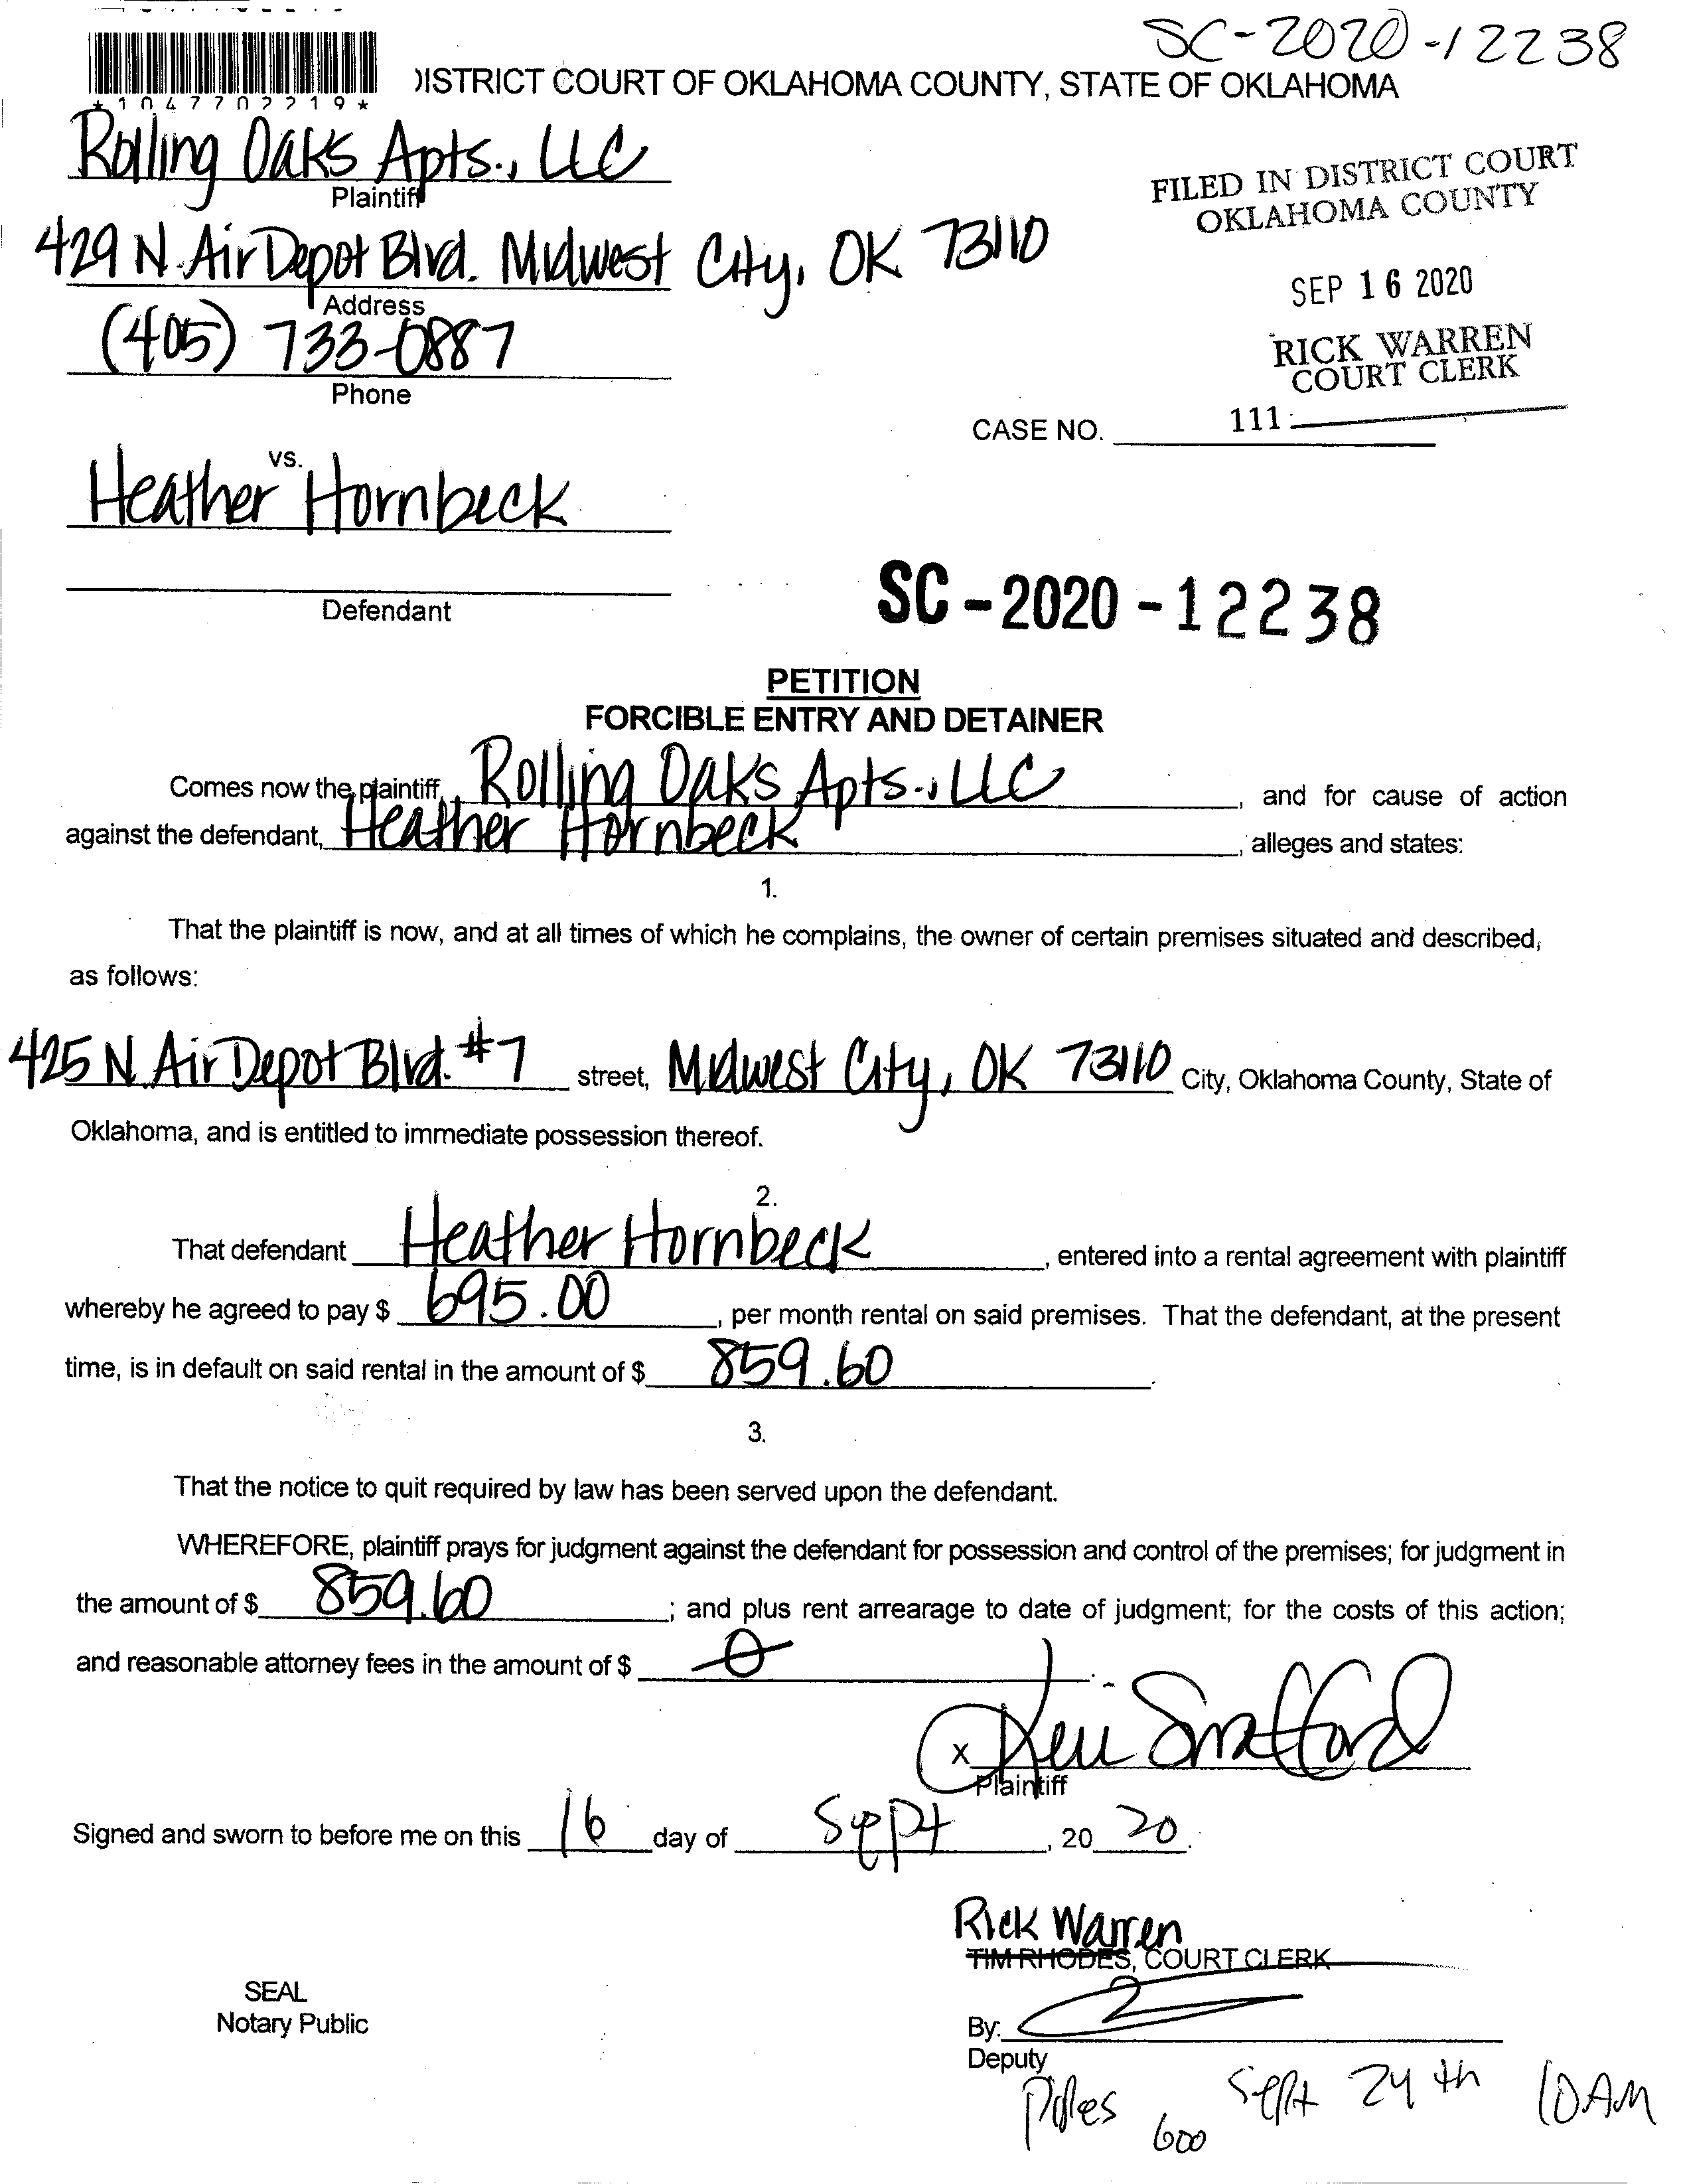 SC-2020-12238
*1047702219*
DISTRICT COURT OF OKLAHOMA COUNTY, STATE OF OKLAHOMA
Rolling Oaks Apts., LLC
Plaintiff
429 N. Air Depot Blvd. Midwest City, OK 73110
Address
(405) 733-0887
Phone
FILED IN DISTRICT COURT
OKLAHOMA COUNTY
SEP 16 2020
RICK WARREN
COURT CLERK
111
CASE NO.
vs.
Heather Hornbeck
Defendant
SC-2020-12238
PETITION
FORCIBLE ENTRY AND DETAINER
Comes now the plaintiff, Rolling Oaks Apts., LLC, and for cause of action
against the defendant, Heather Hornbeck, alleges and states:
1.
That the plaintiff is now, and at all times of which he complains, the owner of certain premises situated and described,
as follows:
425 N. Air Depot Blvd. #7 street, Midwest City, OK 73110 City, Oklahoma County, State of
Oklahoma, and is entitled to immediate possession thereof.
2.
That defendant Heather Hornbeck, entered into a rental agreement with plaintiff
whereby he agreed to pay $ 695.00, per month rental on said premises. That the defendant, at the present
time, is in default on said rental in the amount of $ 859.60.
3.
That the notice to quit required by law has been served upon the defendant.
WHEREFORE, plaintiff prays for judgment against the defendant for possession and control of the premises; for judgment in
the amount of $ 859.60; and plus rent arrearage to date of judgment; for the costs of this action;
and reasonable attorney fees in the amount of $ 0.
x
Plaintiff
Signed and sworn to before me on this 16 day of Sept, 20 20.
Rick Warren
TIM RHODES, COURT CLERK
SEAL
Notary Public
By:
Deputy
Sept 24th 10AM
600